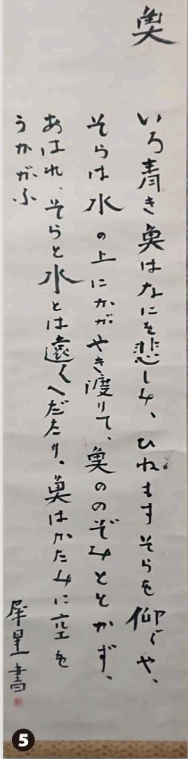 魚
いろ青き魚はなにを悲しみ、ひねもすそらを仰ぐや、
そらは水の上にかがやき渡りて、魚ののぞみとどかず、
あはれ、そらと水とは遠くへだたり、魚はかたみに空を
うかがふ
犀星書
5